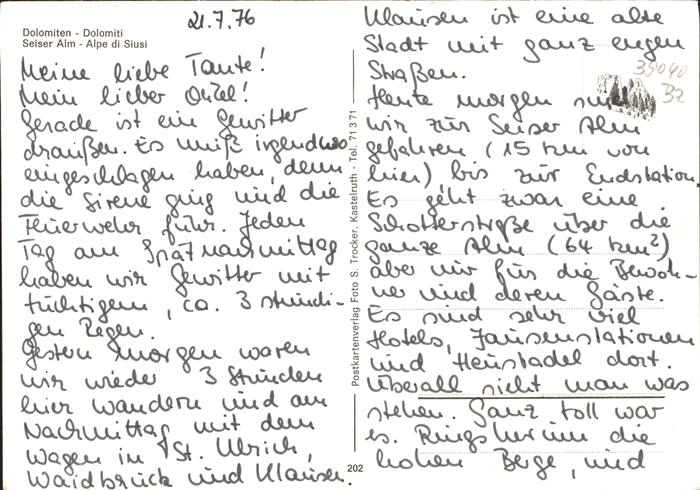 Dolomiten - Dolomiti
Seiser Alm - Alpe di Siusi
21.7.76
Meine liebe Tante!
Mein lieber Onkel!
Gerade ist ein Gewitter
draußen. Es muß irgendwo
eingeschlagen haben, denn
die Sirene ging und die
Feuerwehr fuhr. Jeden
Tag am Spätnachmittag
haben wir Gewitter mit
tüchtigem, ca. 3 stündi-
gen Regen.
Gestern morgen waren
wir wieder 3 Stunden
hier wandern und am
Nachmittag mit dem
Wagen in St. Ulrich,
Waidbruck und Klausen.
Postkartenverlag Foto S. Trocker, Kastelruth - Tel. 71371
202
Klausen ist eine alte
Stadt mit ganz engen
Straßen.
35040
32
Heute morgen sind
wir zur Seiser Alm
gefahren (15 km von
hier) bis zur Endstation.
Es geht zwar eine
Schotterstraße über die
ganze Alm (64 km²)
aber nur für die Bewoh-
ner und deren Gäste.
Es sind sehr viel
Hotels, Jausenstationen
und Heustadel dort.
Überall sieht man was
stehen. Ganz toll war
es. Ringsherum die
hohen Berge, und